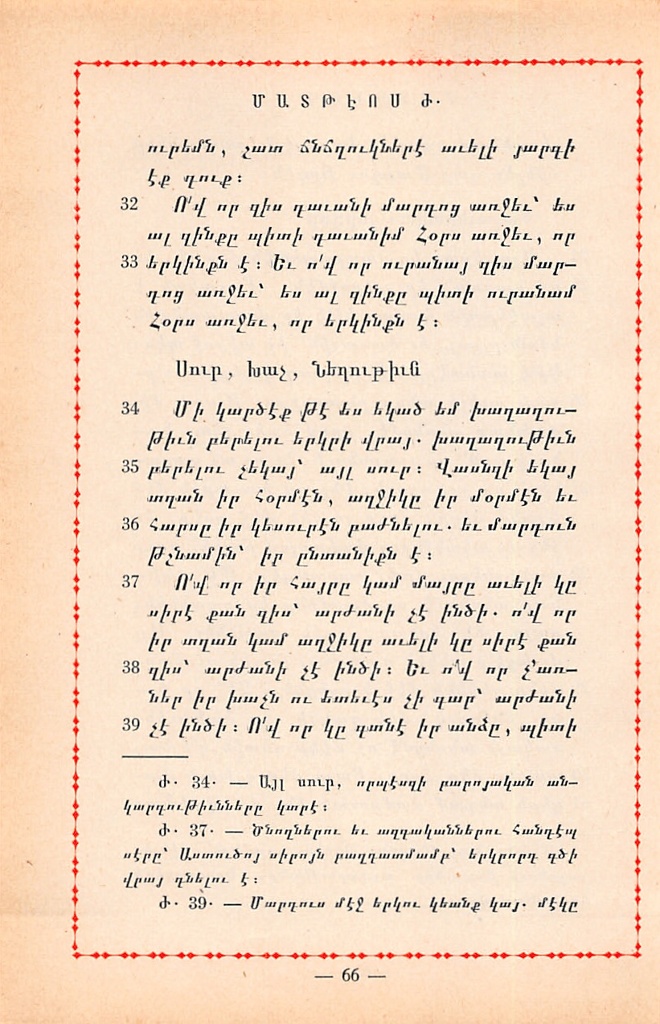 ՄԱՏԹԷՈՍ Ժ․
ուրեմն, շատ ճնճղուկներէ աւելի յարգի
էք դուք։
32 Ո՛վ որ զիս դաւանի մարդոց առջեւ՝ ես
ալ զինքը պիտի դաւանիմ Հօրս առջեւ, որ
33 երկինքն է։ Եւ ո՛վ որ ուրանայ զիս մար–
դոց առջեւ՝ ես ալ զինքը պիտի ուրանամ
Հօրս առջեւ, որ երկինքն է։
Սուր, Խաչ, Նեղութիւն
34 Մի կարծէք թէ ես եկած եմ խաղաղու–
թիւն բերելու երկրի վրայ․ խաղաղութիւն
35 բերելու չեկայ՝ այլ սուր։ Վասնզի եկայ
տղան իր հօրմէն, աղջիկը իր մօրմէն եւ
36 հարսը իր կեսուրէն բաժնելու․ եւ մարդուն
թշնամին՝ իր ընտանիքն է։
37 Ո՛վ որ իր հայրը կամ մայրը աւելի կը
սիրէ քան զիս՝ արժանի չէ ինծի․ ո՛վ որ
իր տղան կամ աղջիկը աւելի կը սիրէ քան
38 զիս՝ արժանի չէ ինծի։ Եւ ո՛վ որ չ՚առ–
ներ իր խաչն ու ետեւէս չի գար՝ արժանի
39 չէ ինծի։ Ո՛վ որ կը գտնէ իր անձը, պիտի
Ժ․ 34․ — Այլ սուր, որպէսզի բարոյական ան–
կարգութիւնները կտրէ։
Ժ․ 37․ — Ծնողներու եւ ազգականներու հանդէպ
սէրը՝ Աստուծոյ սիրոյն բաղդատմամբ՝ երկրորդ գծի
վրայ դնելու է։
Ժ․ 39․ — Մարդուս մէջ երկու կեանք կայ․ մէկը
— 66 —